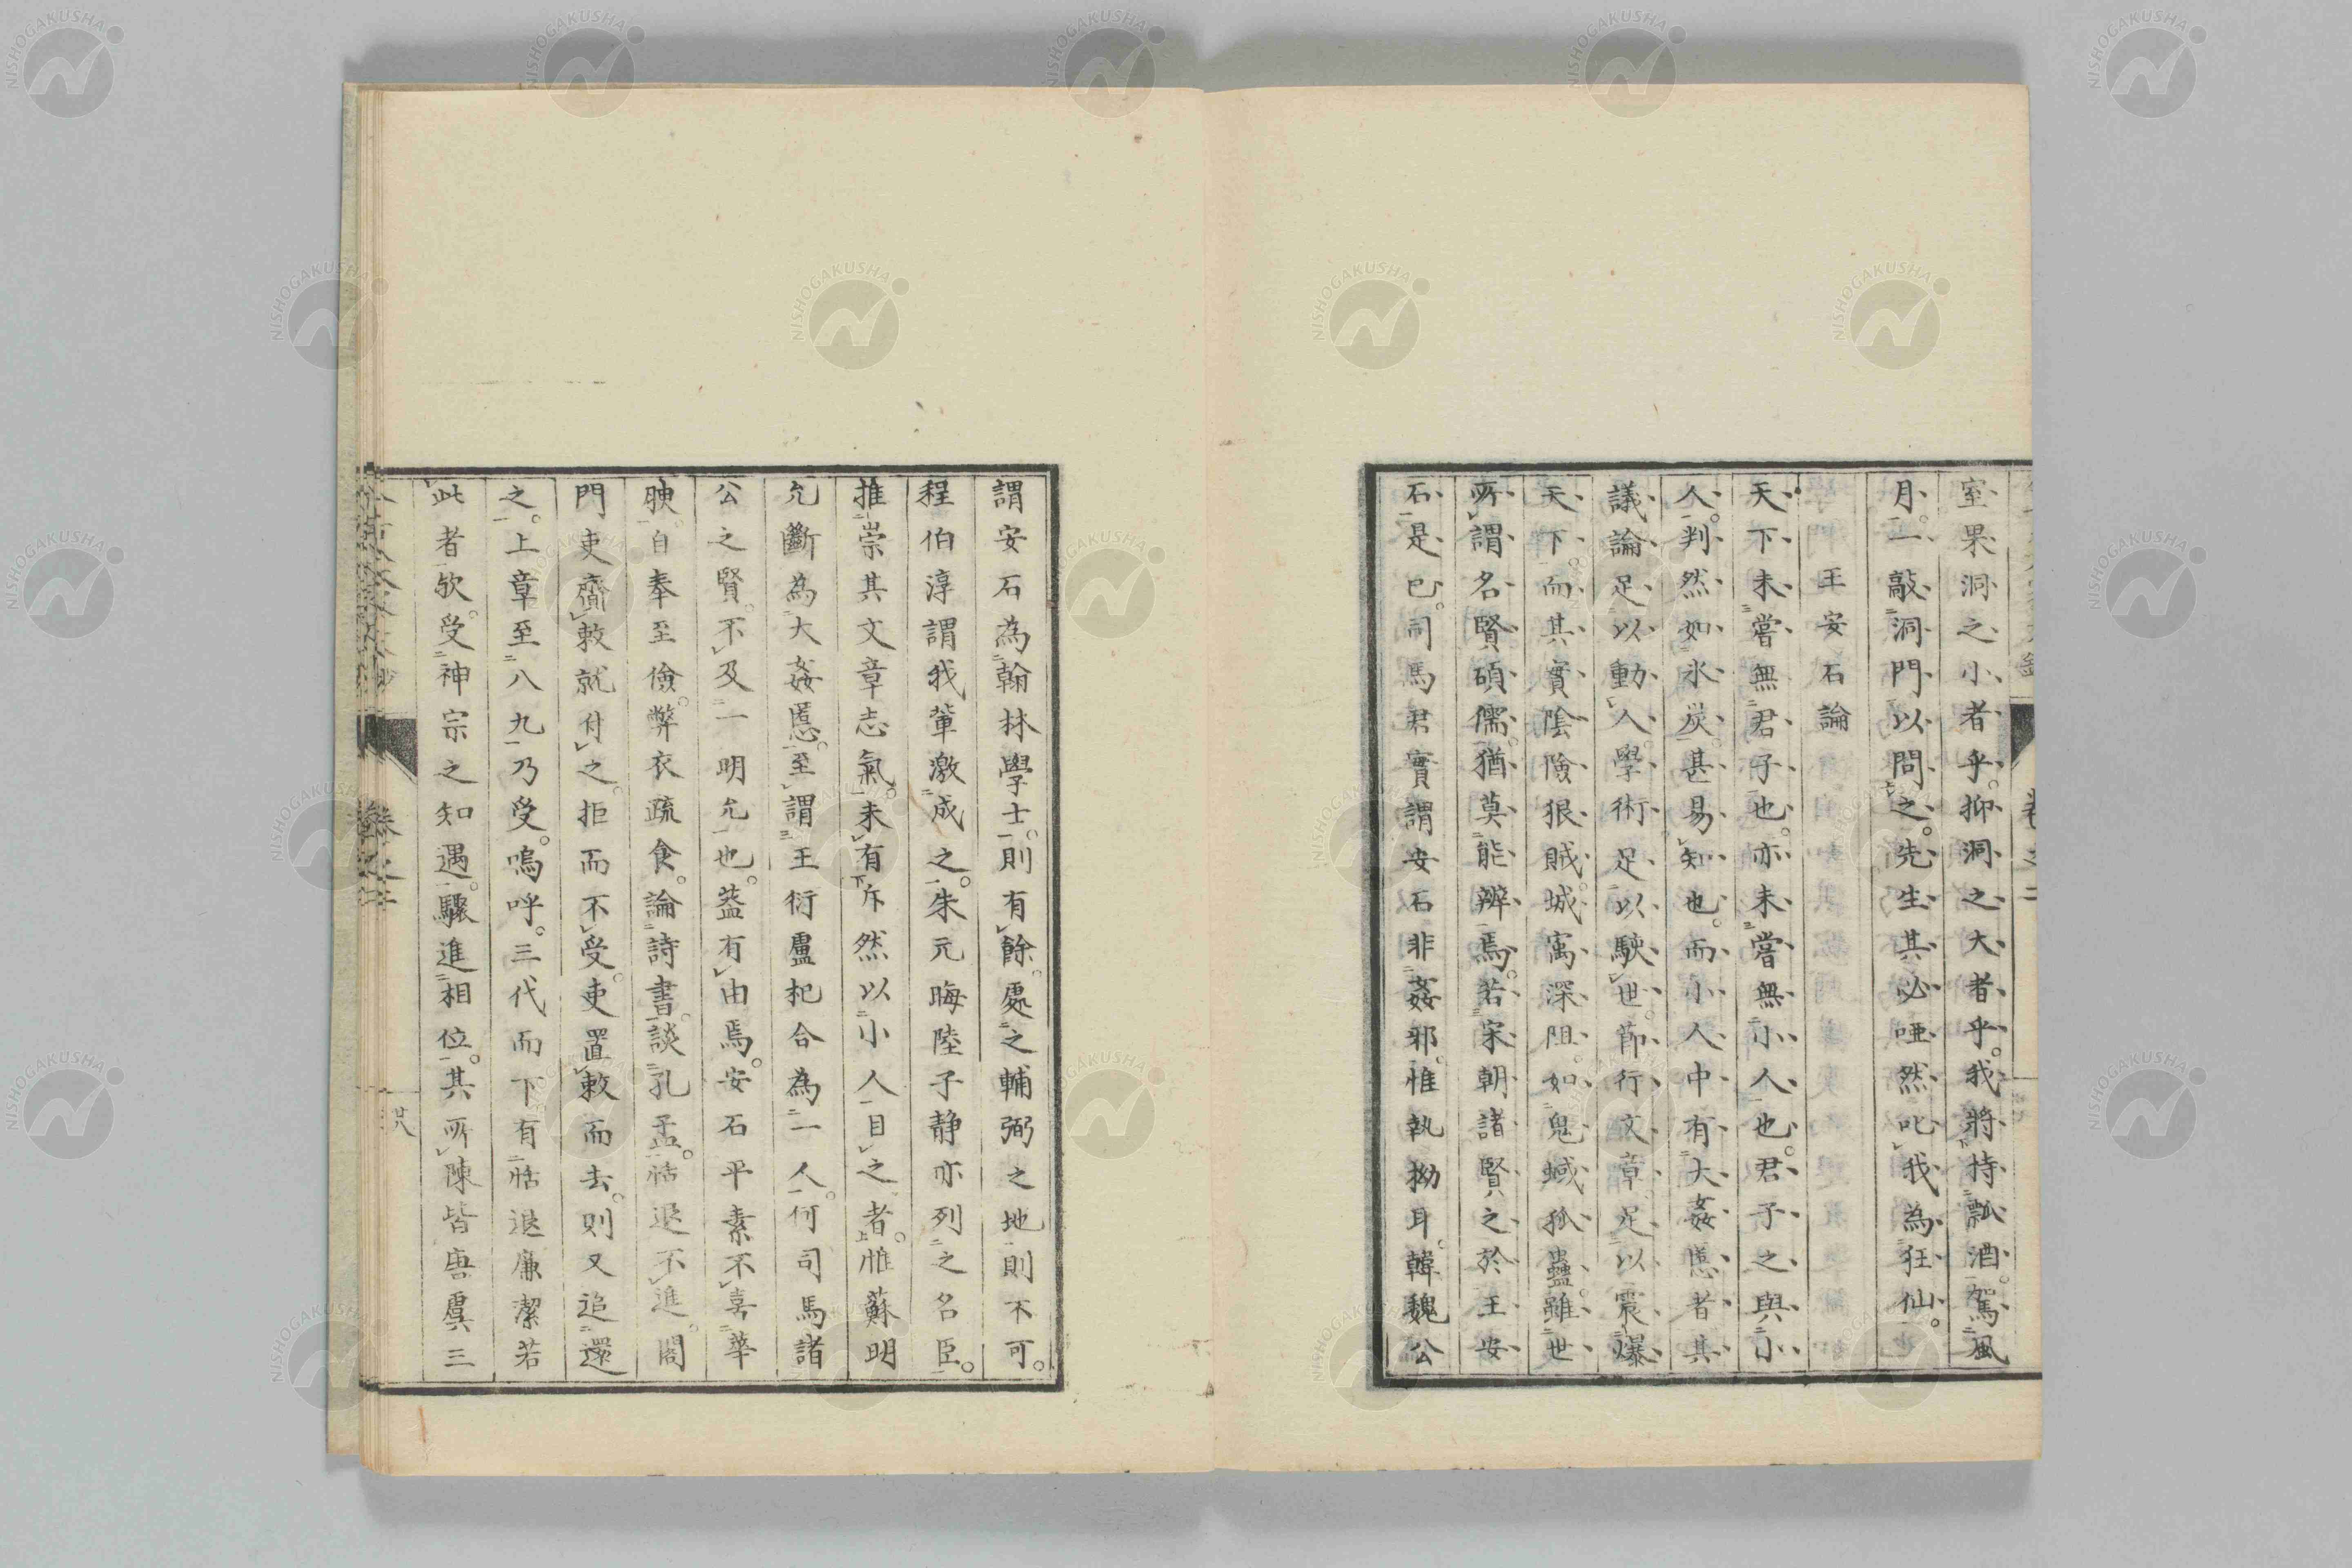 室果洞之小者乎。抑洞之大者乎。我將持瓢酒。駕風
月。一敲洞門以問之。先生其必啞然叱我為狂仙。
王安石論
天下未嘗無君子也。亦未嘗無小人也。君子之與小
人。判然如氷炭。甚易知也。而小人中有大姦慝者。其
議論足以動人。學術足以駛世。節行文章足以震爆
天下。而其實陰險狠賊。城寓深阻。如鬼蜮狐蠱。雖世
所謂名賢碩儒。猶莫能辨焉。若宋朝諸賢之於王安
石是已。司馬君實謂安石非姦邪。惟執拗耳。韓魏公
謂安石為翰林學士。則有餘。處之輔弼之地則不可。
程伯淳謂我輩激成之。朱元晦陸子静亦列之名臣。
推崇其文章志氣。未有斥然以小人目之者。惟蘇明
允斷為大姦慝。至謂王衍盧杞合為一人。何司馬諸
公之賢。不及一明允也。葢有由焉。安石平素不喜華
腴。自奉至儉。弊衣疏食。論詩書。談孔孟。恬退不進。閤
門吏齎敕就付之。拒而不受。吏置敕而去。則又追還
之。上章至八九。乃受。嗚呼。三代而下有恬退廉潔若
此者歟。受神宗之知遇。驟進相位。其所陳皆唐虞三
卷之二
廿八
NISHOGAKUSHA